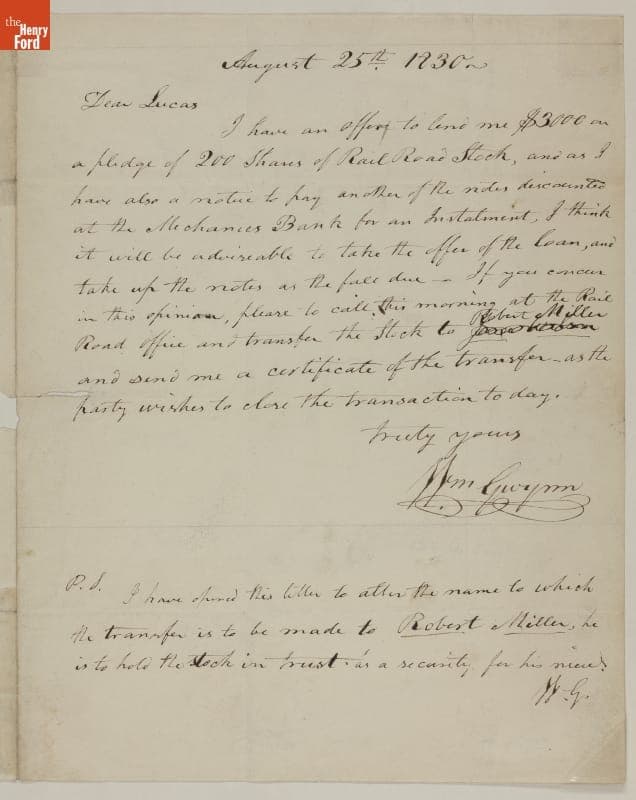 the
Henry
Ford
August 25th 1830
Dear Lucas
I have an offer to lend me $3000 on
a pledge of 200 Shares of Rail Road Stock, and as I
have also a notice to pay another of the notes discounted
at the Mechanics Bank for an Instalment, I think
it will be adviseable to take the offer of the loan, and
take up the notes as the fall due - If you concur
in this opinion, please to call this morning at the Rail
Robert Miller
Road Office and transfer the Stock to
and send me a certificate of the transfer - as the
party wishes to close the transaction to day.
truly yours
Wm Gwynn
P.S. I have opened this letter to alter the name to which
the transfer is to be made to Robert Miller, he
is to hold the stock in trust as a security for his niece.
W.G.